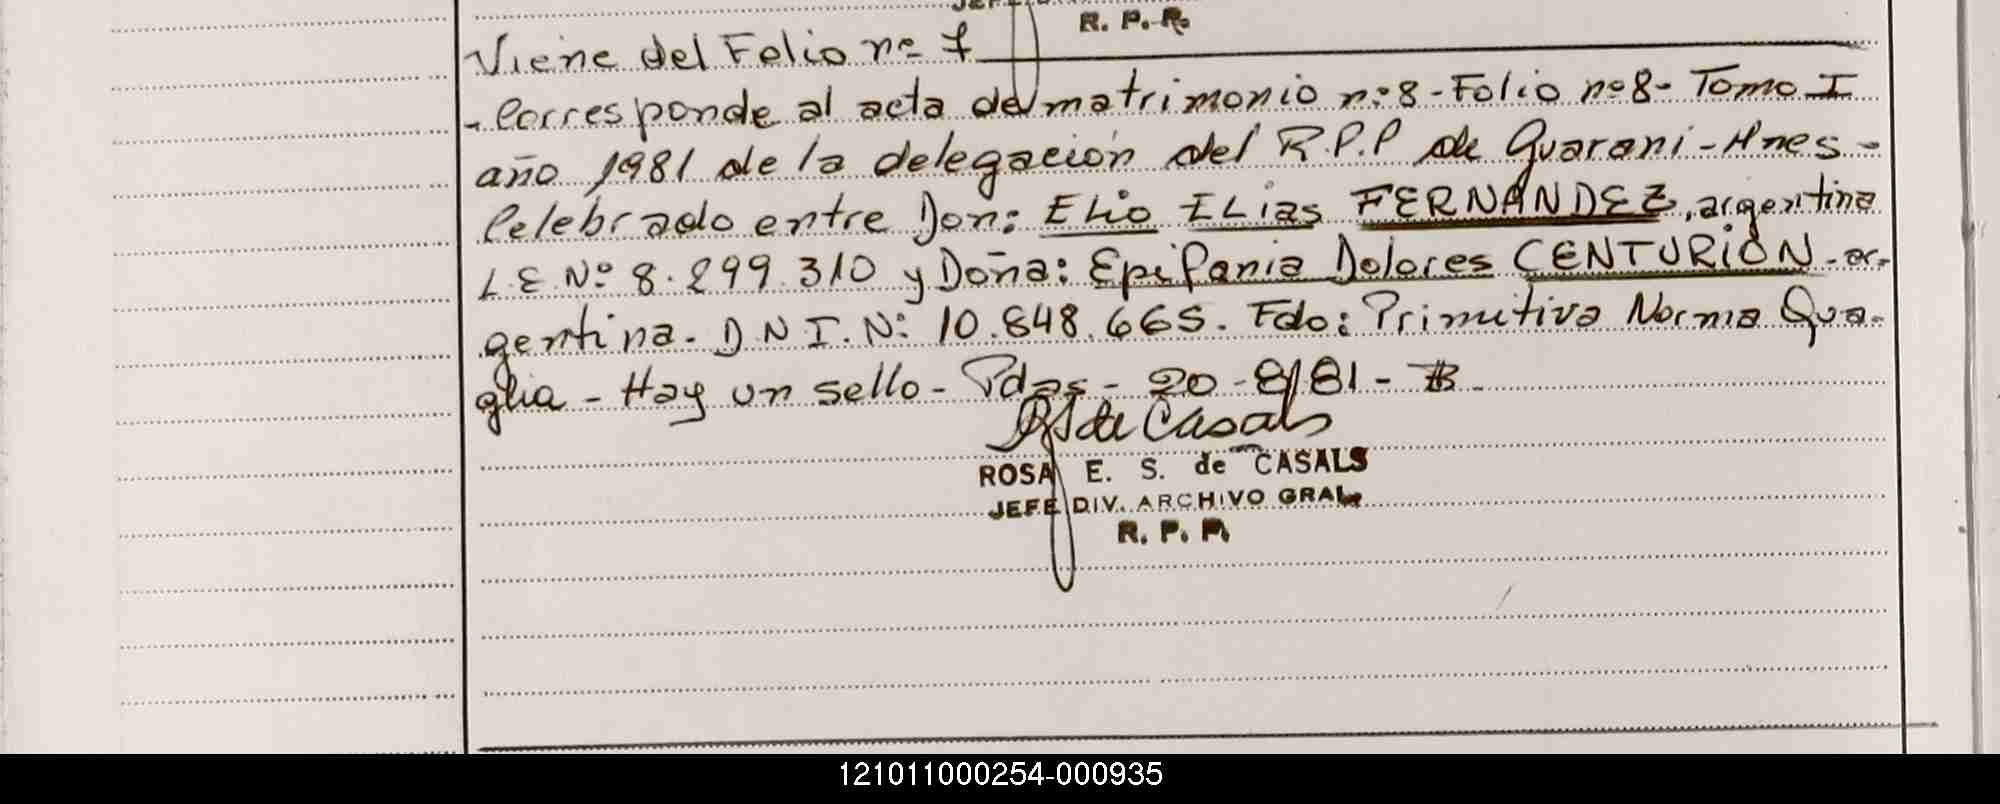 R. P. P.
Viene del Folio nº 7
- Corresponde al acta de matrimonio n:8 - Folio nº 8 - Tomo I
año 1981 de la delegación del R.P.P de Guarani - Mnes -
Celebrado entre Don: Elio ILias FERNANDEZ, argentina
L.E Nº 8.299.310 y Doña: Epifania Dolores CENTURIÓN - ar-
gentina. D N I. N: 10.848.665. Fdo: Primitiva Norma Qua-
glia - Hay un sello - Pdas - 20 - 8/81 -
de Casals
ROSA E. S. de CASALS
JEFE DIV. ARCHIVO GRAL.
R. P. P.
121011000254-000935